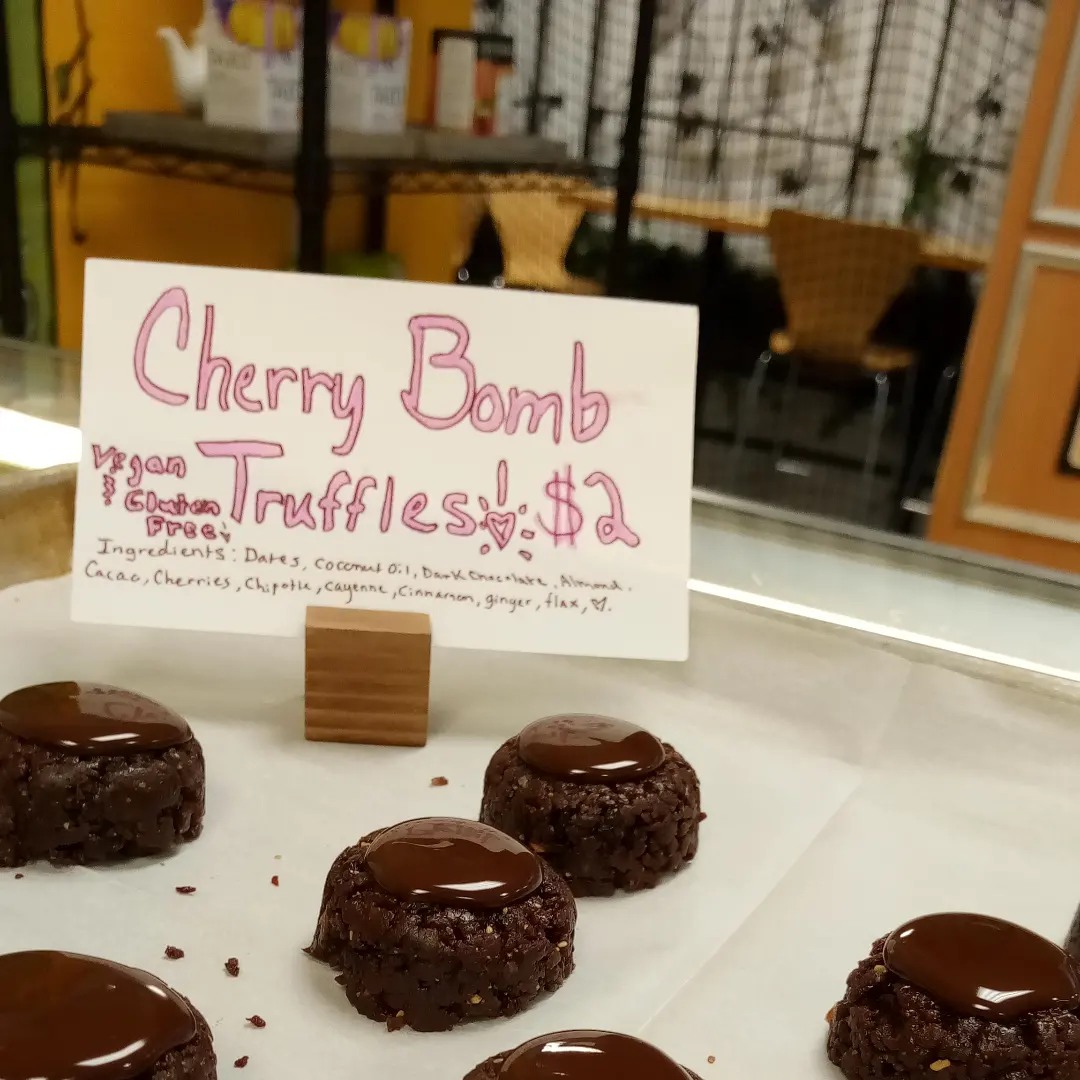 Cherry Bomb
Truffles! $2
Vegan
& Gluten
Free!
Ingredients: Dates, Coconut Oil, Dark Chocolate, Almond,
Cacao, Cherries, Chipotle, Cayenne, Cinnamon, ginger, flax, ♡.